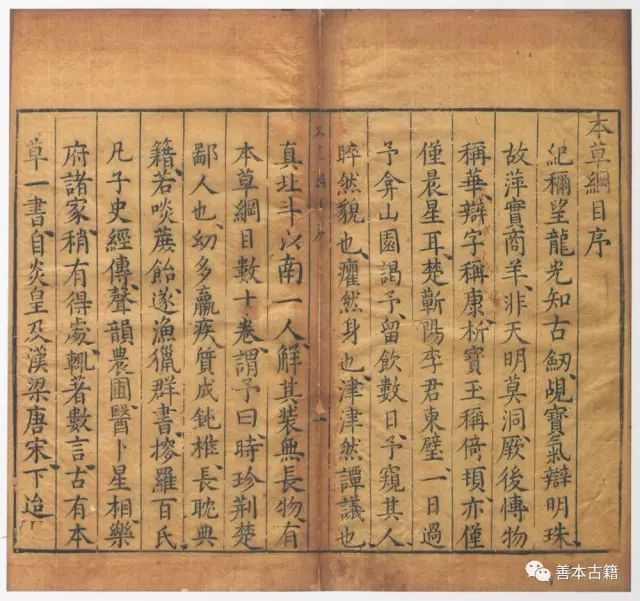 本草綱目序
紀穪望龍光知古劒覘寶氣辯明珠
故萍實商羊非天明莫洞厥後慱物
稱華辯字稱康析寶玉稱倚頓亦僅
僅晨星耳楚蘄陽李君東璧一日過
予弇山園謁予留飲數日予窺其人
睟然貌也癯然身也津津然譚議也
真北斗以南一人解其裝無長物有
本草綱目數十卷謂予曰時珍荆楚
鄙人也幼多羸疾質成鈍椎長耽典
籍若啖蔗飴遂漁獵群書搜羅百氏
凡子史經傳聲韻農圃醫卜星相樂
府諸家稍有得處輒著數言古有本
草一書自炎皇及漢梁唐宋下迨
善本古籍